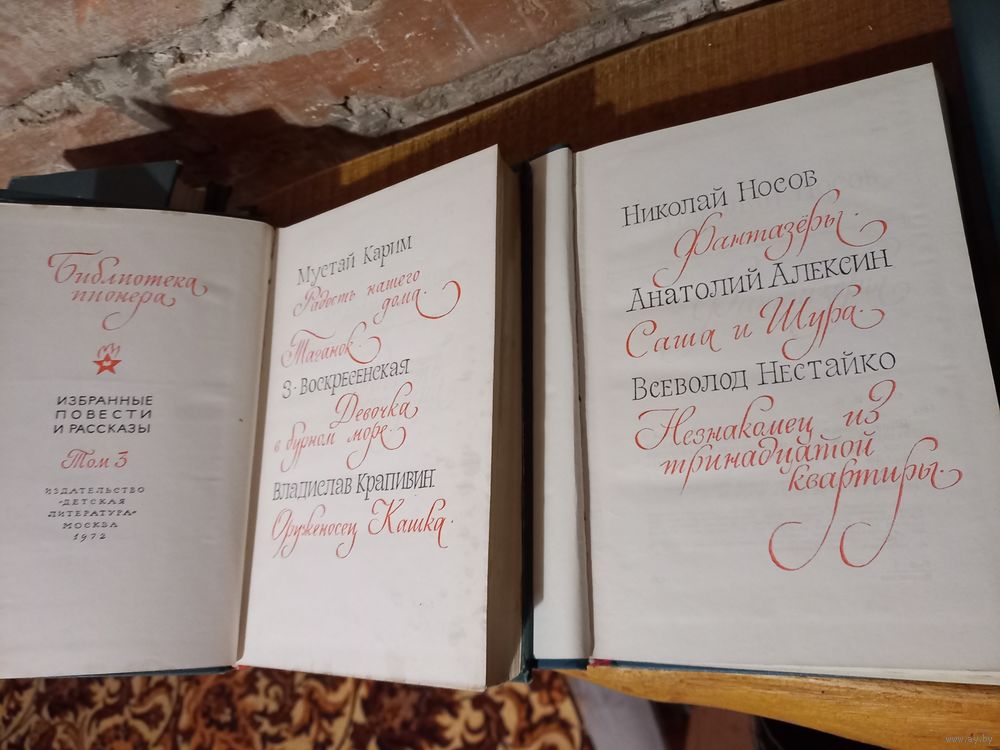 Библиотека
пионера
ИЗБРАННЫЕ
ПОВЕСТИ
И РАССКАЗЫ
Том 3
ИЗДАТЕЛЬСТВО
«ДЕТСКАЯ
ЛИТЕРАТУРА»
МОСКВА
1972
Мустай Карим
Радость нашего
дома.
Таганок.
З. Воскресенская
Девочка
в бурном море.
Владислав Крапивин.
Оруженосец Кашка.
Николай Носов
Фантазёры.
Анатолий Алексин
Саша и Шура.
Всеволод Нестайко
Незнакомец из
тринадцатой
квартиры.
www.ay.by